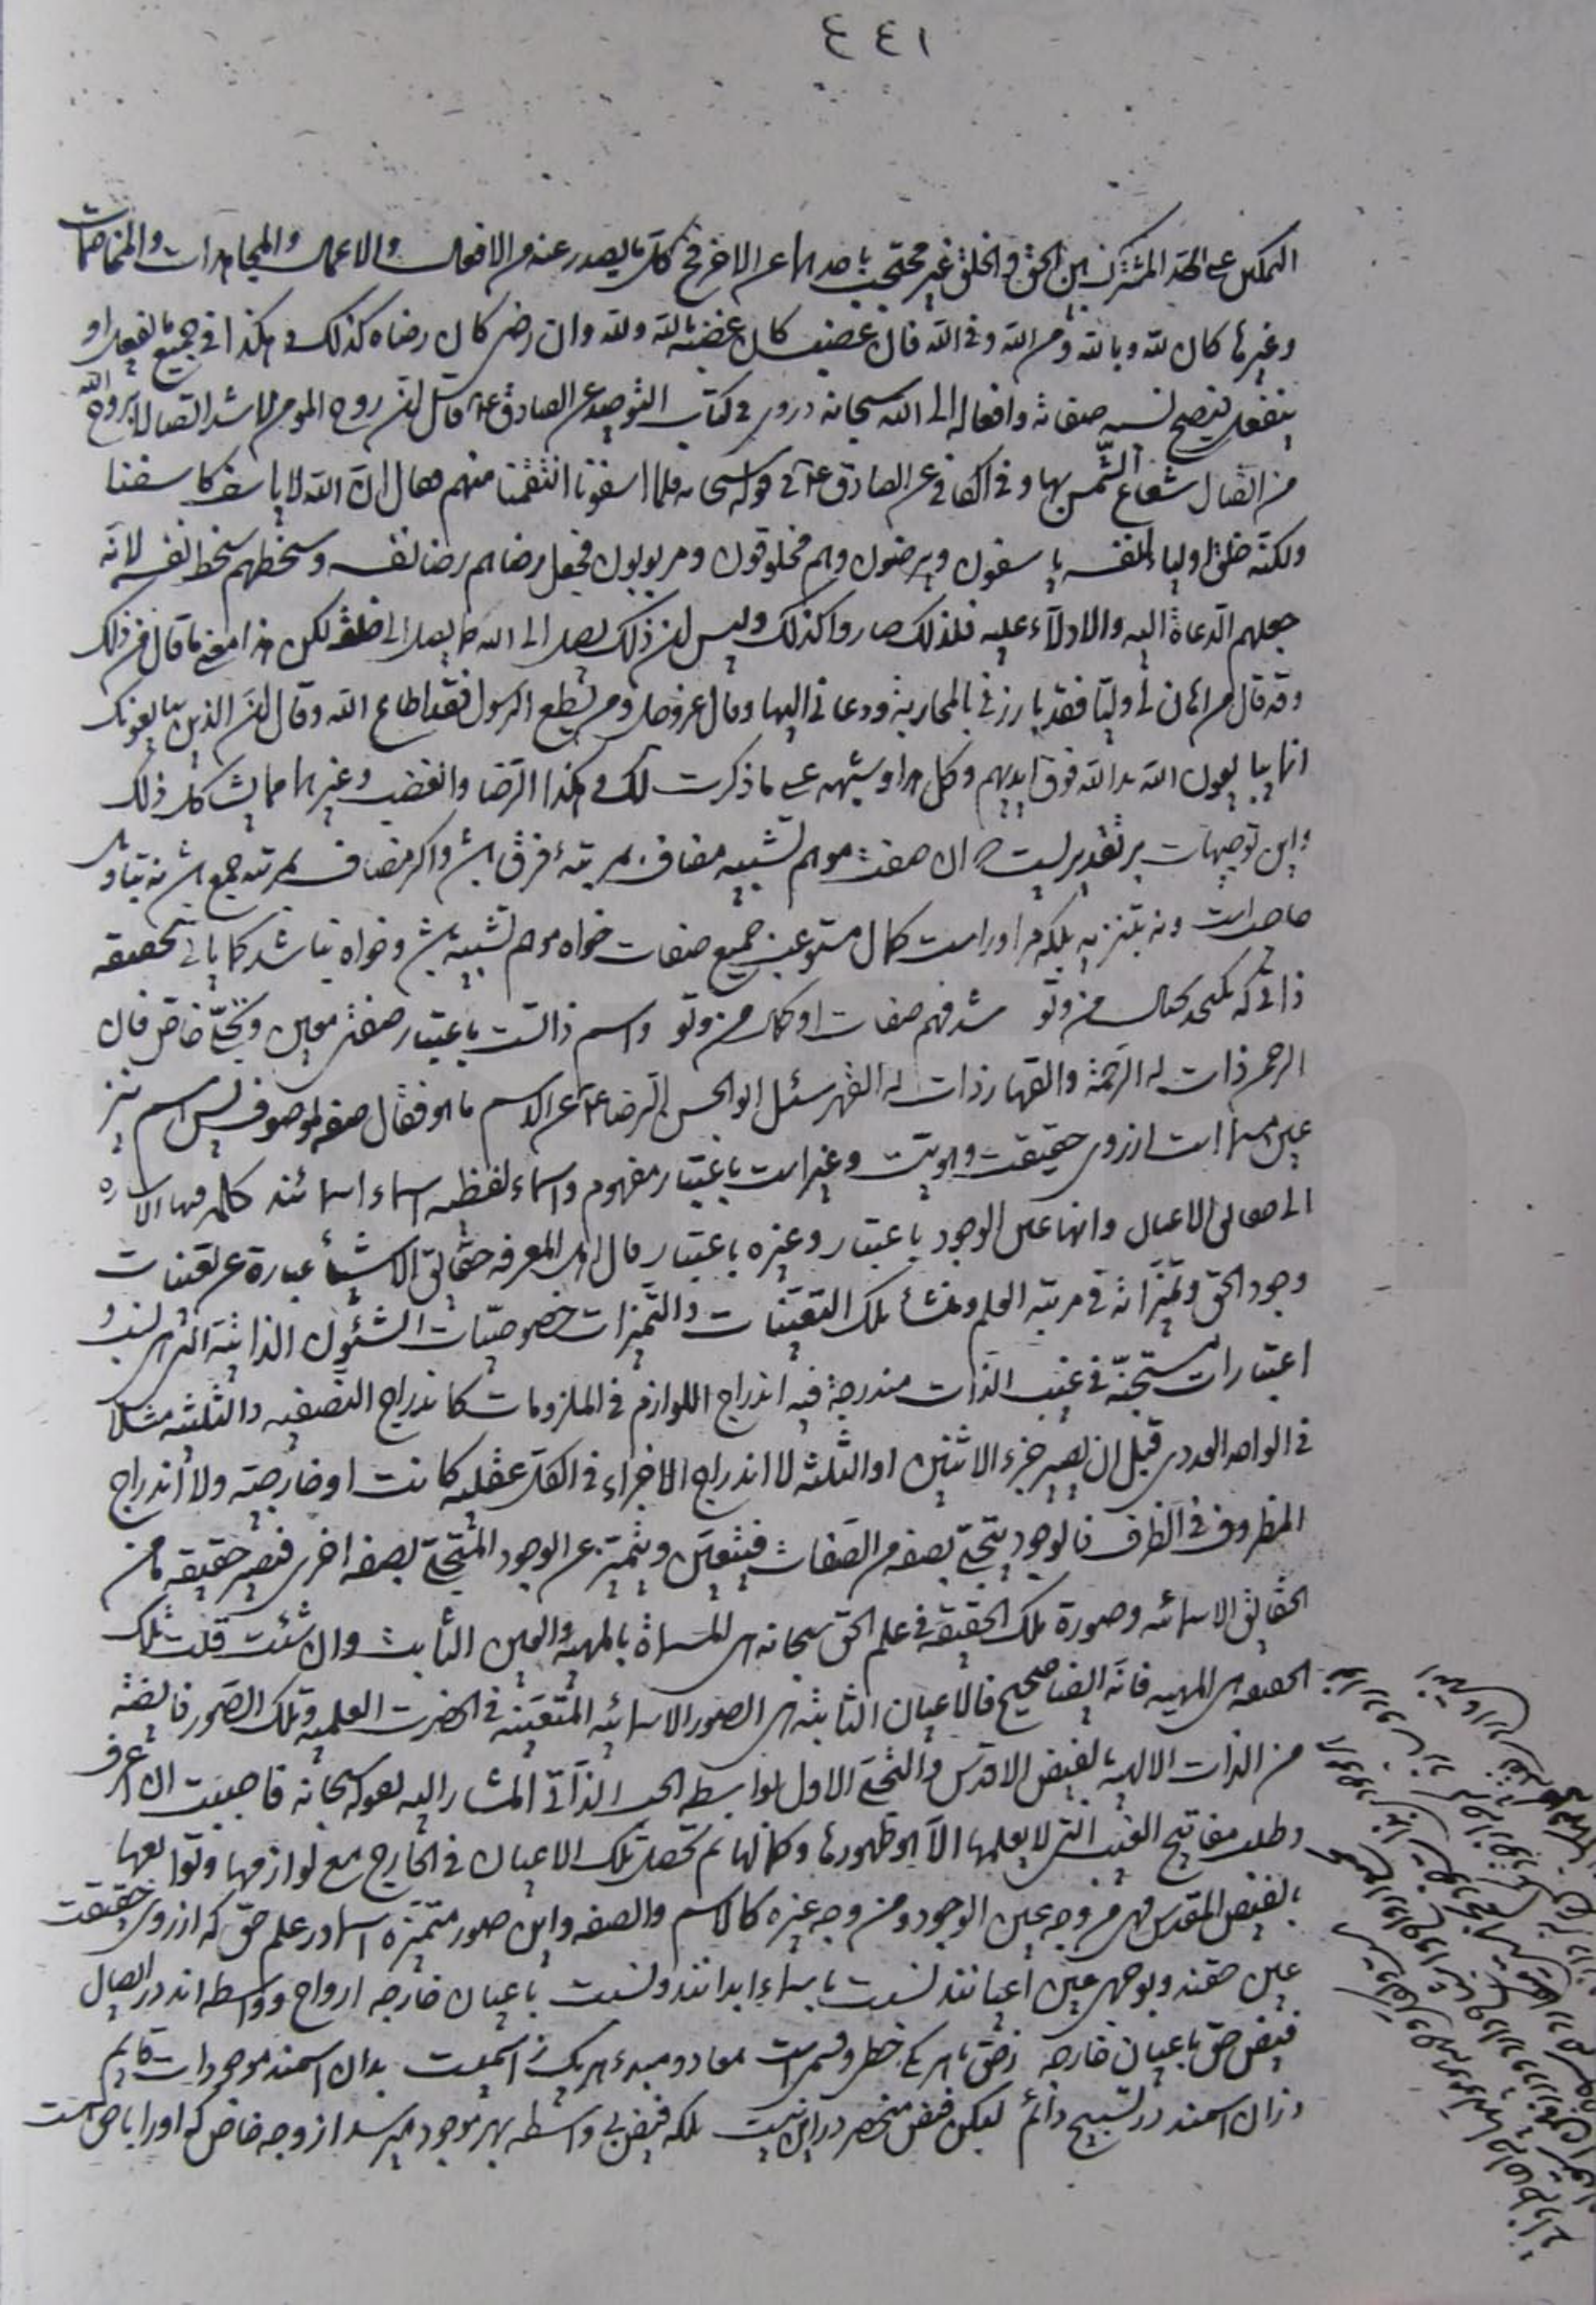 ٤٤١
التمكين على الحد المشترك بين الحق والخلق غير محتجب باحدهما عن الاخر فح كل ما يصدر عنه من الافعال والاعمال والمجاهدات والمخاصمات
وغيرها كان لله وبالله ومن الله وفى الله فان غضب كان غضبه بالله ولله وان رضى كان رضاه كذلك وهكذا فى جميع ما يفعل او
ينفعل فيصح نسبه صفاته وافعاله الى الله سبحانه وروى فى كتاب التوحيد عن الصادق ع قال ان روح المومن لاشد اتصالا بروح الله
من اتصال شعاع الشمس بها وفى الكافى عن الصادق ع فى قوله سبحانه فلما اسفونا انتقمنا منهم فقال ان الله لا ياسف كاسفنا
ولكنه خلق اولياء لنفسه ياسفون ويرضون وهم مخلوقون ومربوبون فجعل رضاهم رضا نفسه وسخطهم سخط نفسه لانه
جعلهم الدعاة اليه والادلاء عليه فلذلك صاروا كذلك وليس ان ذلك يصل الى الله كما يصل الى خلقه لكن هذا معنى ما قال من ذلك
وقد قال من اهان لى وليا فقد بارزنى بالمحاربة ودعانى اليها وقال عز وجل ومن يطع الرسول فقد اطاع الله وقال ان الذين يبايعونك
انما يبايعون الله يد الله فوق ايديهم وكل هذا وشبهه على ما ذكرت لك وهكذا الرضا والغضب وغيرهما مما يشاكل ذلك
واين توجيهات بر تقديريست كه ان صفت موهم تشبيه مضاف بمرتبهٔ فرق باشد واكر مضاف بمرتبه جمع باشد نه بتاويل
حاجت است ونه بتنزيه بلكه مر او راست كمال مستوعب جميع صفات خواه موهم تشبيه باشد وخواه نباشد كما يأتى تحقيقه
ذاتى كه بكنجد كمال من وتو شد فهم صفات او كمال من وتو واسم ذاتست باعتبار صفتى معين وتجلى خاص فان
الرحمن ذات له الرحمة والقهار ذات له القهر سئل ابو الحسن الرضا ع عن الاسم ما هو فقال صفه لموصوف پس اسم نيز
عين مسما است از روى حقيقت وهويت وغير است باعتبار مفهوم واسماء لفظيه اسماء اسمائند كلمه فيها الاشاره
الى حقائق الاعيان وانها عين الوجود باعتبار وغيره باعتبار قال اهل المعرفه حقائق الاشياء عبارة عن تعينات
وجود الحق وتميزاته فى مرتبة العلم ومنشأ تلك التعينات والتميزات خصوصيات الشئون الذاتية التى هى نسب و
اعتبارات مستجنة فى غيب الذات مندرجة فيه اندراج اللوازم فى الملزومات كاندراج النصفيه والثلثيه مثلا
فى الواحد العددى قبل ان يصير جزء الاثنين او الثلثه لا اندراج الاجزاء فى الكل عقليه كانت او خارجية ولا اندراج
المظروف فى الظرف فالوجود يتجلى بصفه من الصفات فيتعين ويتميز عن الوجود المتجلى بصفه اخرى فيصير حقيقه ما من
الحقائق الاسمائيه وصورة تلك الحقيقة فى علم الحق سبحانه هى المسماة بالمهيه والعين الثابت وان شئت قلت تلك
الحقيقه هى المهيه فانه ايضا صحيح فالاعيان الثابته هى الصور الاسمائيه المتعينه فى الحضرت العلميه وتلك الصور فائضة
من الذات الالهية بالفيض الاقدس والتجلى الاول بواسطه الحب الذاتى المشار اليه بقوله سبحانه فاحببت ان اعرف
وطلب مفاتيح الغيب التى لا يعلمها الا هو ظهورها وكمالها ثم تحصل تلك الاعيان فى الخارج مع لوازمها وتوابعها
بالفيض المقدس فهى من وجه عين الوجود ومن وجه غيره كالاسم والصفه واين صور متميزه اسما در علم حق كه از روى حقيقت
عين حقند وبوجهى عين اعيانند نسبت باسماء ابدانند ونسبت باعيان خارجه ارواح وواسطه اند در ايصال
فيض حق باعيان خارجه زحق باهر يكى خطى وقسمى است معاد ومبدء هر يك ز اسميست بدان اسمند موجودات قايم
وزان اسمند در تسبيح دائم ليكن فيض منحصر در اين نيست بلكه فيض بى واسطه بهر موجود ميرسد از وجه خاص كه او را با حق است